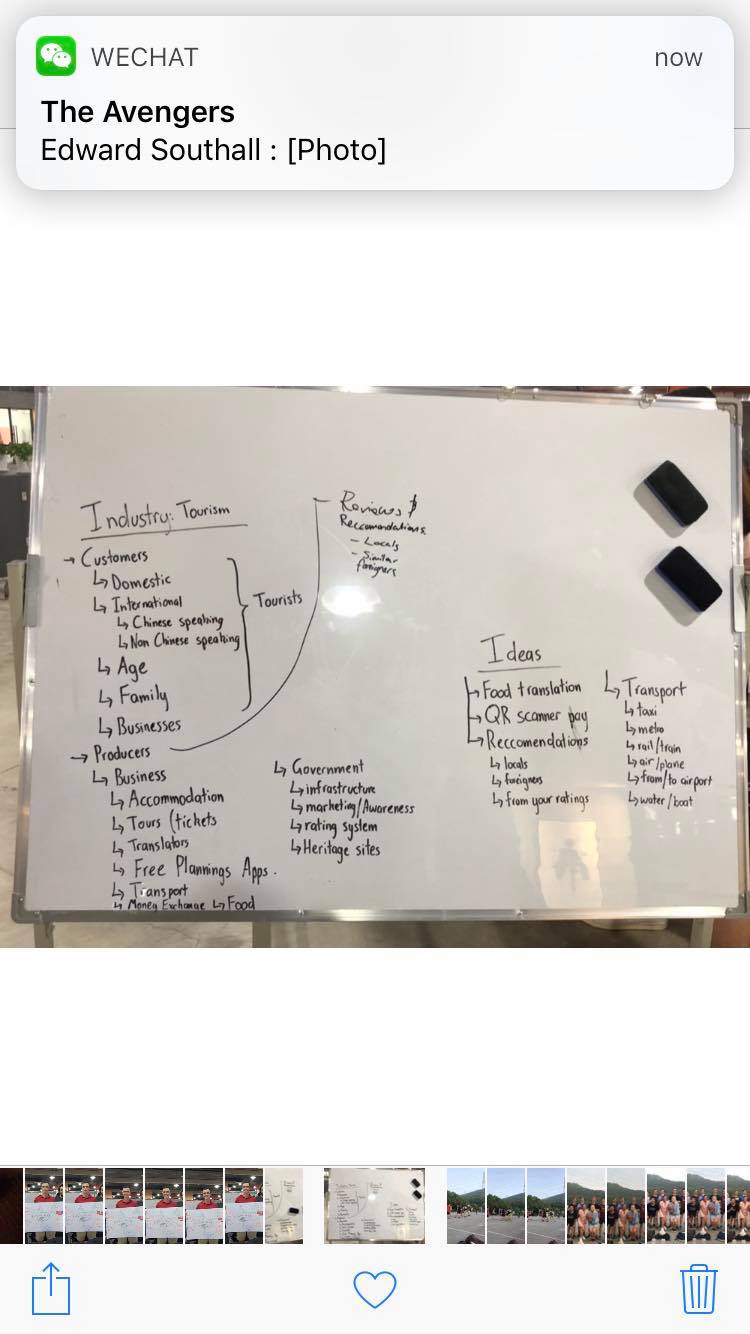 WECHAT now
The Avengers
Edward Southall : [Photo]
Industry: Tourism
→ Customers
↳ Domestic
↳ International
↳ Chinese speaking
↳ Non Chinese speaking
↳ Age
↳ Family
↳ Businesses
Tourists
→ Producers
↳ Business
↳ Accommodation
↳ Tours (tickets
↳ Translators
↳ Free Plannings Apps.
↳ Transport
↳ Money Exchange ↳ Food
Reviews &
Reccomendations
- Locals
- Similar
foreigners
↳ Government
↳ infrastructure
↳ marketing/Awareness
↳ rating system
↳ Heritage sites
Ideas
↳ Food translation
↳ QR scanner pay
↳ Reccomendations
↳ locals
↳ foreigners
↳ from your ratings
↳ Transport
↳ taxi
↳ metro
↳ rail/train
↳ air/plane
↳ from/to airport
↳ water/boat